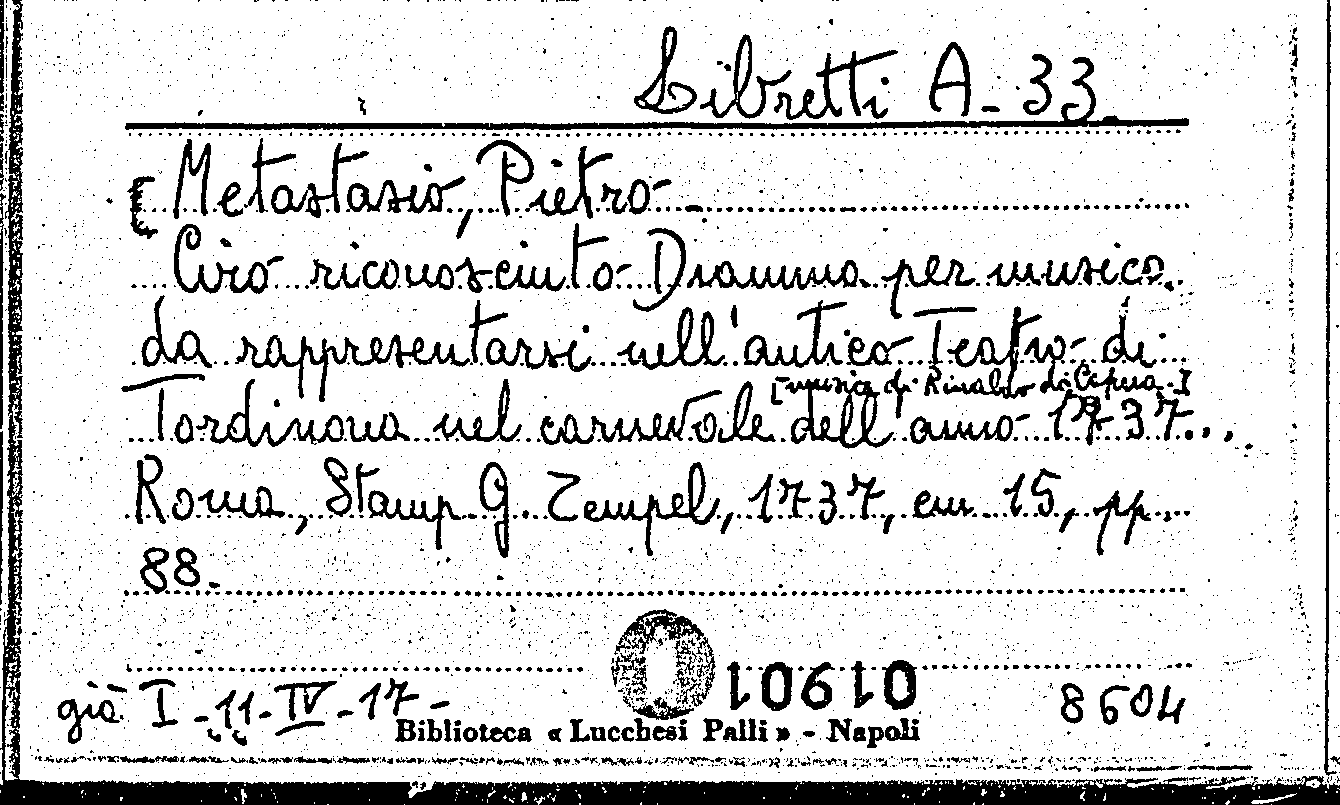 Libretti A-33.
[Metastasio, Pietro-
Ciro riconosciuto Dramma per musica
da rappresentarsi nell'antico Teatro di
[musica di Rinaldo di Capua.]
Tordinona nel carnevale dell'anno 1737...
Roma, Stamp. G. Zempel, 1737, cm 15, pp.
88.
10610
già I-11-IV-17- 8604
Biblioteca « Lucchesi Palli » - Napoli